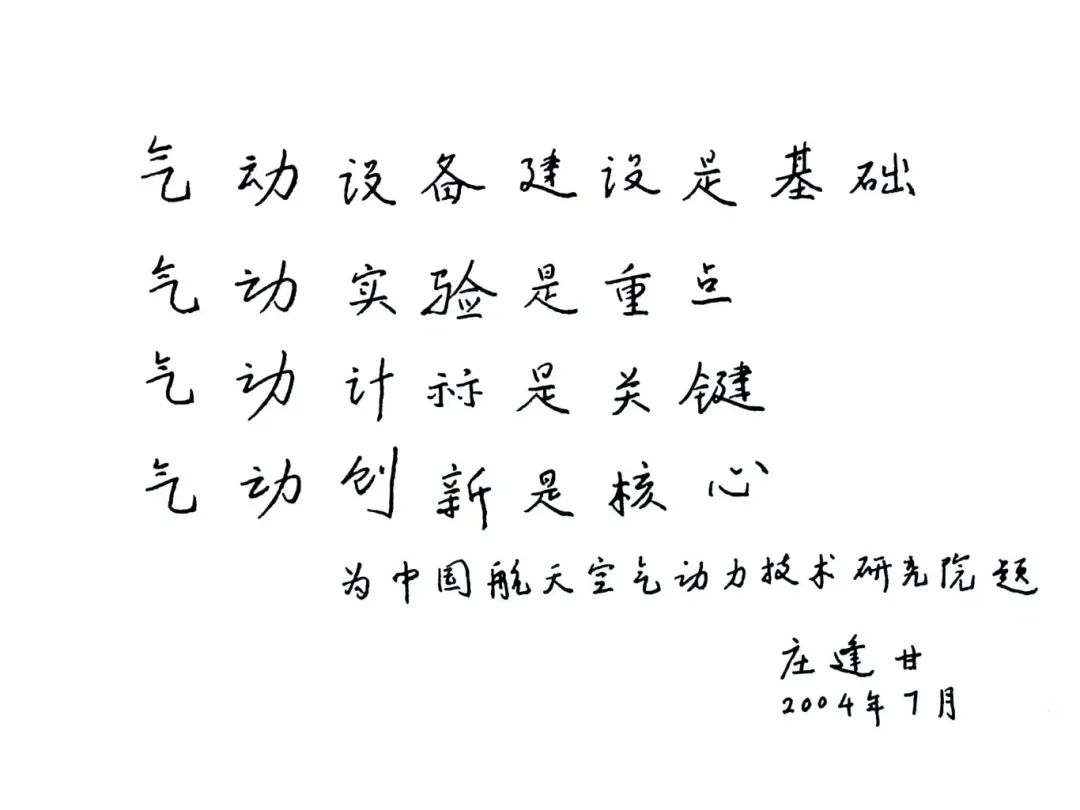 气动设备建设是基础
气动实验是重点
气动计祘是关键
气动创新是核心
为中国航天空气动力技术研究院题
庄逢甘
2004年7月